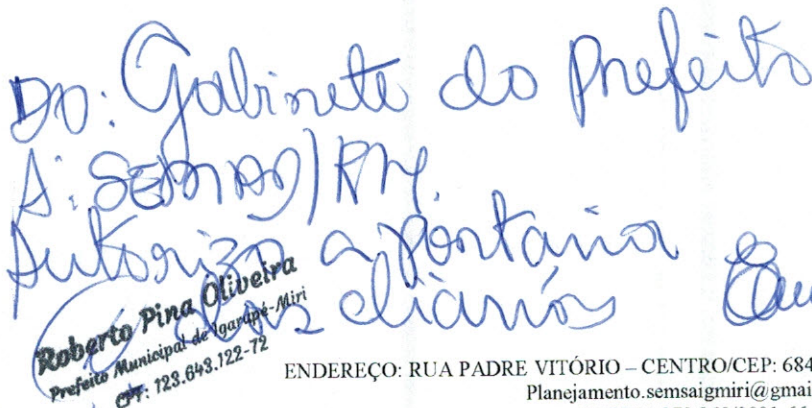 Do: Gabinete do Prefeito
A: SEMAD/RH.
Autorizo a portaria
das diárias
Roberto Pina Oliveira
Prefeito Municipal de Igarapé-Miri
CPF: 123.643.122-72
ENDEREÇO: RUA PADRE VITÓRIO – CENTRO/CEP: 684
Planejamento.semsaigmiri@gmai